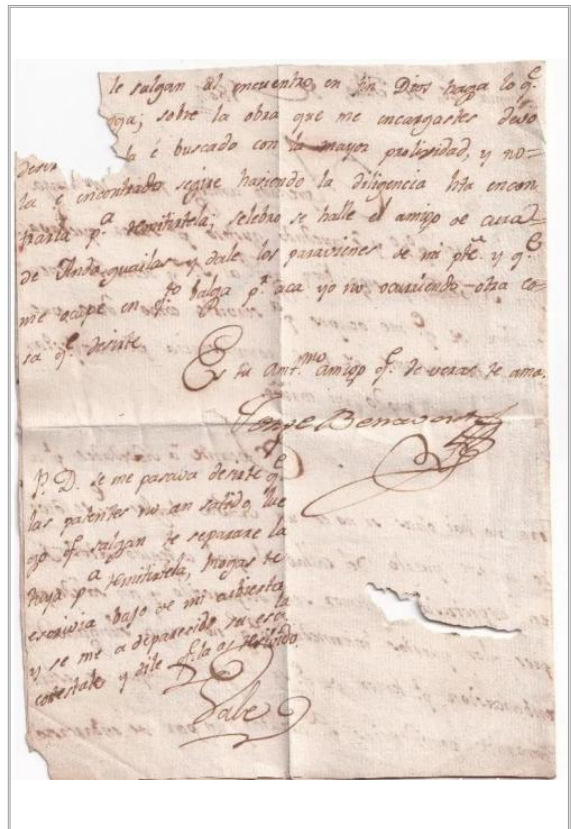 le salgan al encuentro en fin Dios haga lo q.e
sobre la obra que me encargastes devo
la é buscado con la mayor prolixidad, y no=
la é encontrado segire haziendo la diligencia hta encon
trarla p.a remitirtela; selebro se halle el amigo de cura
de Andaguailas y dale los paravienes de mi pte. y q.e
me ocupe en q.to balga p.r aca yo no ocurriendo otra co=
sa q.e desirte
Es tu Ant.mo amigo q.e de veras te ama.
Jorge Benavente
P.D. se me pasava desirte q.e
las patentes no an salido lue
go q.e salgan te separare la
tuya p.a remitirtela,
escrivia bajo de mi cubierta
y se me a
contestale y dile q.e la as resivido
Vale